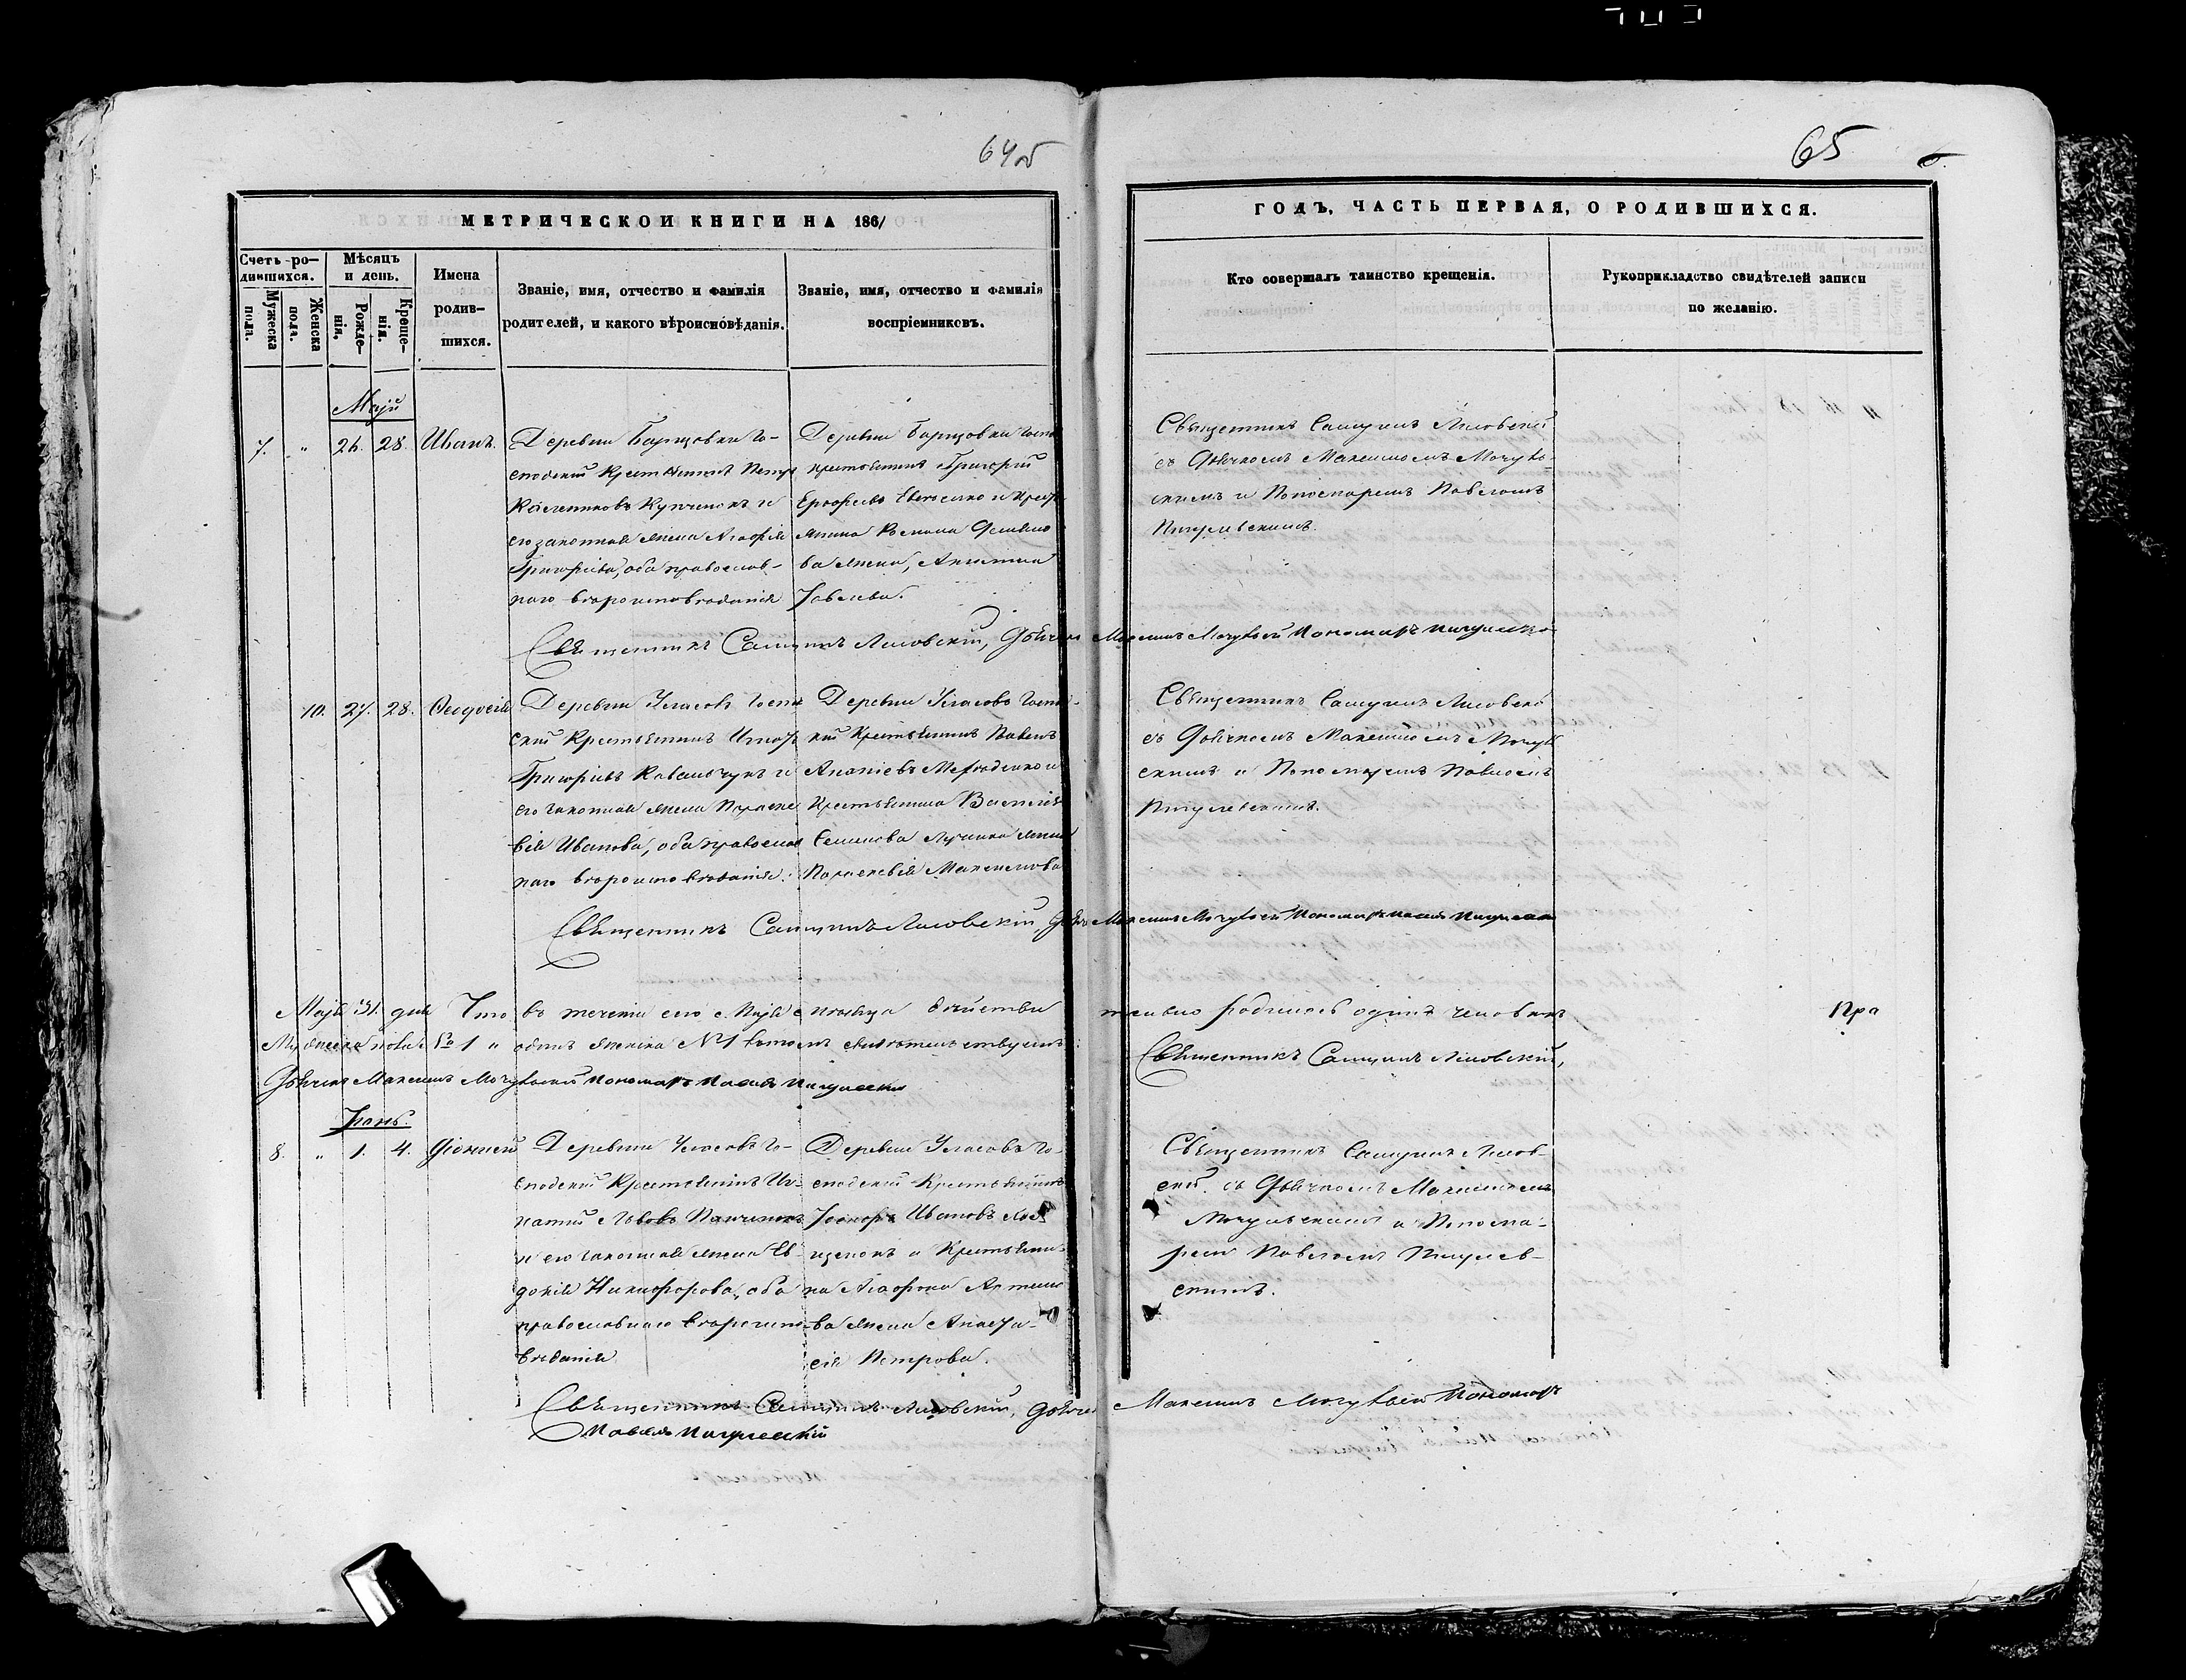 64 об
65
МЕТРИЧЕСКОЙ КНИГИ НА 1861
ГОДЪ, ЧАСТЬ ПЕРВАЯ, О РОДИВШИХСЯ.
Счетъ ро-
дившихся.
Мужеска
пола.
Женска
пола.
Мѣсяцъ
и день.
Рожде-
нія.
Креще-
нія.
Имена
родив-
шихся.
Званіе, имя, отчество и фамилія
родителей, и какого вѣроисповѣданія.
Званіе, имя, отчество и фамилія
воспріемниковъ.
Кто совершалъ таинство крещенія.
Рукоприкладство свидѣтелей записи
по желанію.
Маій
7. " 26. 28. Иванъ.
Деревни Барщовки го-
сподскій Крестянинъ Петръ
и
его законная жена Агафія
Григоріева, оба православ-
наго вѣроисповѣданія
Деревни Барщовки госпо
крестьянинъ Григорій
и Крест
жена,
Священникъ Самуилъ Лисовскій
съ Дьячкомъ Максимомъ Мочуль-
скимъ и Пономаремъ Павломъ
Пигулевскимъ.
Священникъ Самуилъ Лисовскій, Дьячекъ Максимъ Мочульскій Пономарь
10. 27. 28. Ѳеодосія
Деревни Уласовъ госпо
скій Крестьянинъ Игнатъ
Григоріевъ Ковальчукъ и
его законная жена Параске
вія Иванова, оба православ
наго вѣроисповѣданія.
Деревни Уласовъ госпо-
кій Крестьянинъ Павелъ
Ананіевъ и
Крестьянина Василія
Семенова жена
Параскевія Максимова
Священникъ Самуилъ Лисовскій
съ Дьячкомъ Максимомъ Мочуль
скимъ и Пономаремъ Павломъ
Пигулевскимъ.
Священникъ Самуилъ Лисовскій, Дьячекъ Максимъ Мочульскій Пономарь Павелъ
Маія 31. дня Что въ теченіи сего Маія мѣсяца дѣйствительно родилось одинъ человѣкъ Пра
Мужеска пола № 1 " одинъ женска № 1 въ томъ свидѣтельствуемъ: Священникъ Самуилъ Лисовскій,
Дьячекъ Максимъ Мочульскій Пономарь Павелъ Пигулевскій
Іюнь.
8. " 1. 4. Діонисій
Деревни Уласовъ го-
сподскій Крестьянинъ Иг-
натій Львовъ
и его законная жена Ев-
докія Никифорова, оба
православнаго вѣроиспо-
вѣданія
Деревни Уласовъ го-
сподскій Крестьянинъ
Ивановъ
и Крестьяни-
на Агафона Артемо
ва жена Анаста-
сія Петрова.
Священникъ Самуилъ Лисов-
скій. съ Дьячкомъ Максимомъ
Мочульскимъ и Понома-
ремъ Павломъ Пигулев-
скимъ.
Священникъ Самуилъ Лисовскій, Дьячекъ Максимъ Мочульскій Пономарь
Павелъ Пигулевскій